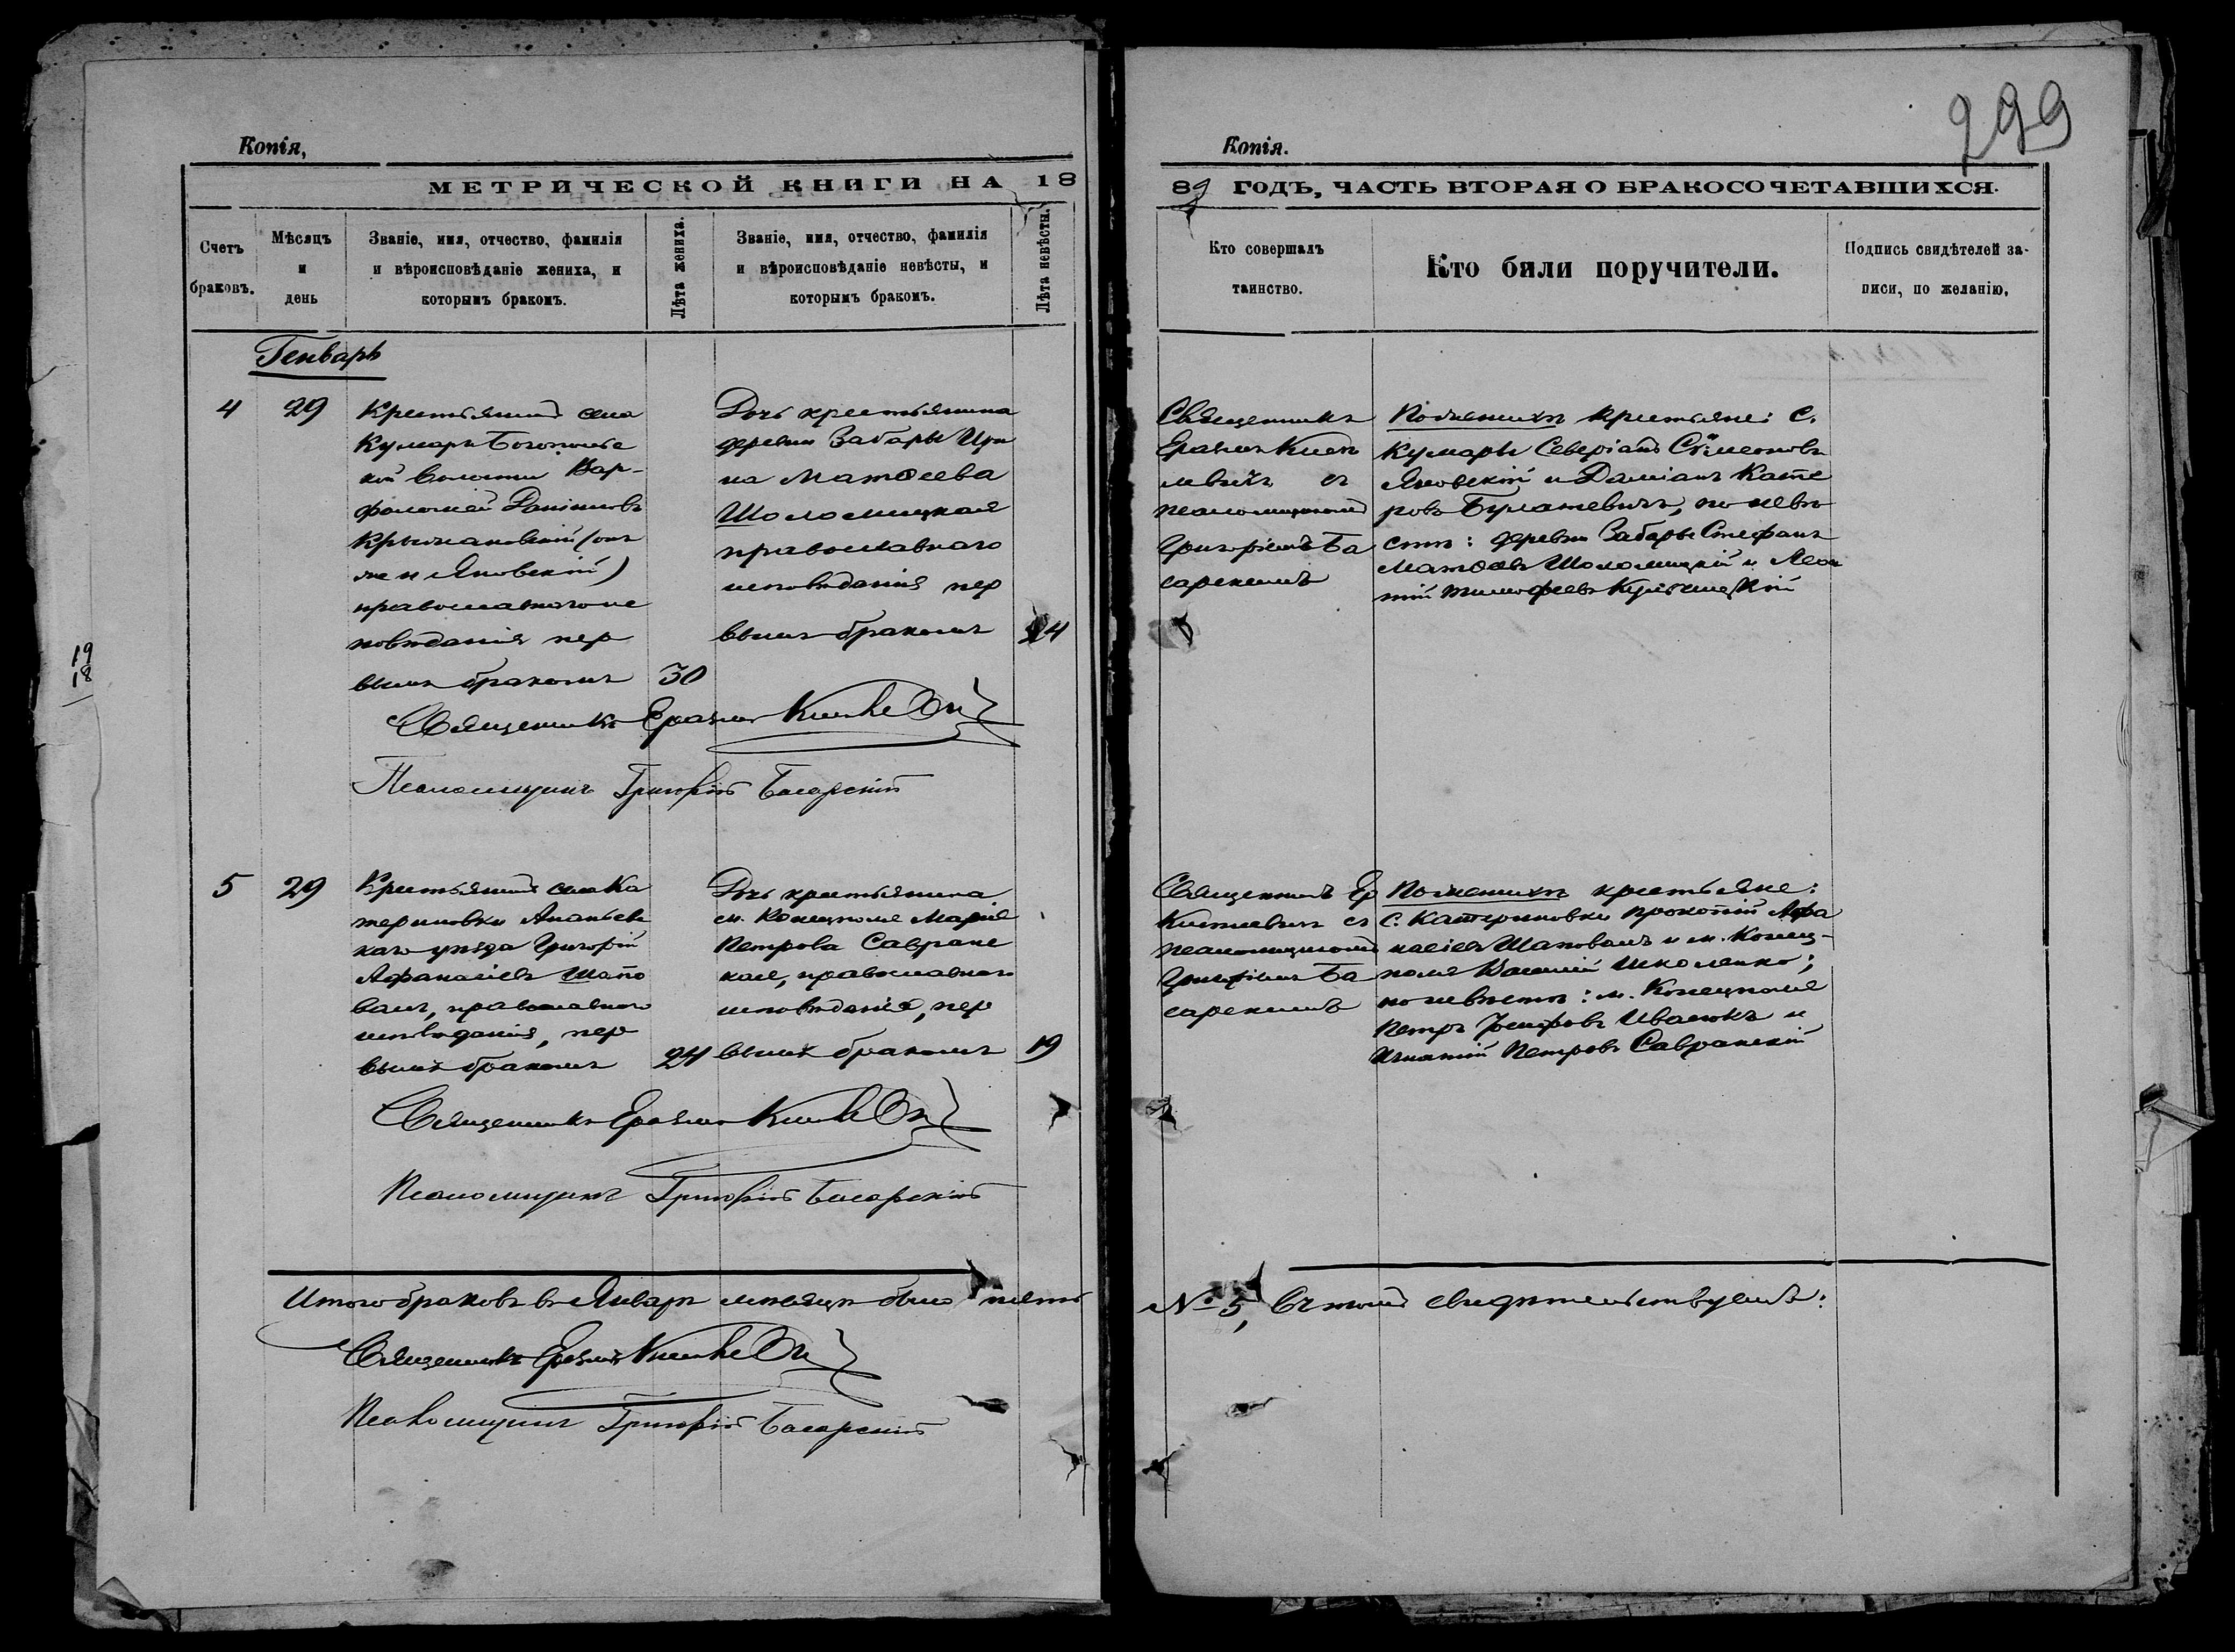 299
Копія,
МЕТРИЧЕСКОЙ КНИГИ НА 18
Счетъ браковъ.
Мѣсяцъ и день
Званіе, имя, отчество, фамилія
и вѣроисповѣданіе жениха, и
которымъ бракомъ.
Лѣта жениха.
Званіе, имя, отчество, фамилія
и вѣроисповѣданіе невѣсты, и
которымъ бракомъ.
Лѣта невѣсты.
Генварь
4
29
Крестьянинъ села
Кумаръ Богопольс
кой волости Вар-
фоломей Даніиловъ
Крыжановскій (онъ
же и Яновскій)
православного ис
повѣданія пер
вымъ бракомъ
30
Дочь крестьянина
деревни Забары Ири
на Матѳеева
Шоломицкая
православнаго
исповѣданія пер
вымъ бракомъ
24
Священникъ Еразмъ
Псаломщикъ Григорій Басарскій
5
29
Крестьянинъ села Ка
териновки Ананьевс
каго уѣзда Григорій
Афанасіевъ Шапо
валъ, православного
исповѣданія, пер
вымъ бракомъ
24
Дочь крестьянина
м. Конецполя Марія
Петрова Савранс
кая, православнаго
исповѣданія, пер
вымъ бракомъ
19
Священникъ Еразмъ
Псаломщикъ Григорій Басарскій
Итого браковъ въ Январѣ мѣсяцѣ было пять
Священникъ Еразмъ
Псаломщикъ Григорій Басарскій
19
18
Копія.
89 ГОДЪ, ЧАСТЬ ВТОРАЯ О БРАКОСОЧЕТАВШИХСЯ.
Кто совершалъ
таинство.
Кто били поручители.
Подпись свидѣтелей за-
писи, по желанію,
Священникъ
Еразмъ
съ
псаломщикомъ
Григоріемъ Ба
сарскимъ
По женихѣ крестьяне: с.
Кумары Северіанъ Сѵмеоновъ
Яновскій и Даміанъ
Булатевичъ, по невѣ
стѣ: деревни Забары Стефанъ
Матѳеевъ Шоломицкій и Леон
тій Тимофеевъ Кульчицкій
Священникъ Ер
съ
псаломщикомъ
Григоріемъ Ба
сарскимъ
По женихѣ крестьяне:
с. Катериновки Прокопій Афа
насіевъ Шаповалъ и м. Конец-
поля Василій Школенко;
по невѣстѣ: м. Конецполя
Петръ Іосифовъ Ивасюкъ и
Игнатій Петровъ Савранскій
№ 5, въ томъ свидѣтельствуемъ: